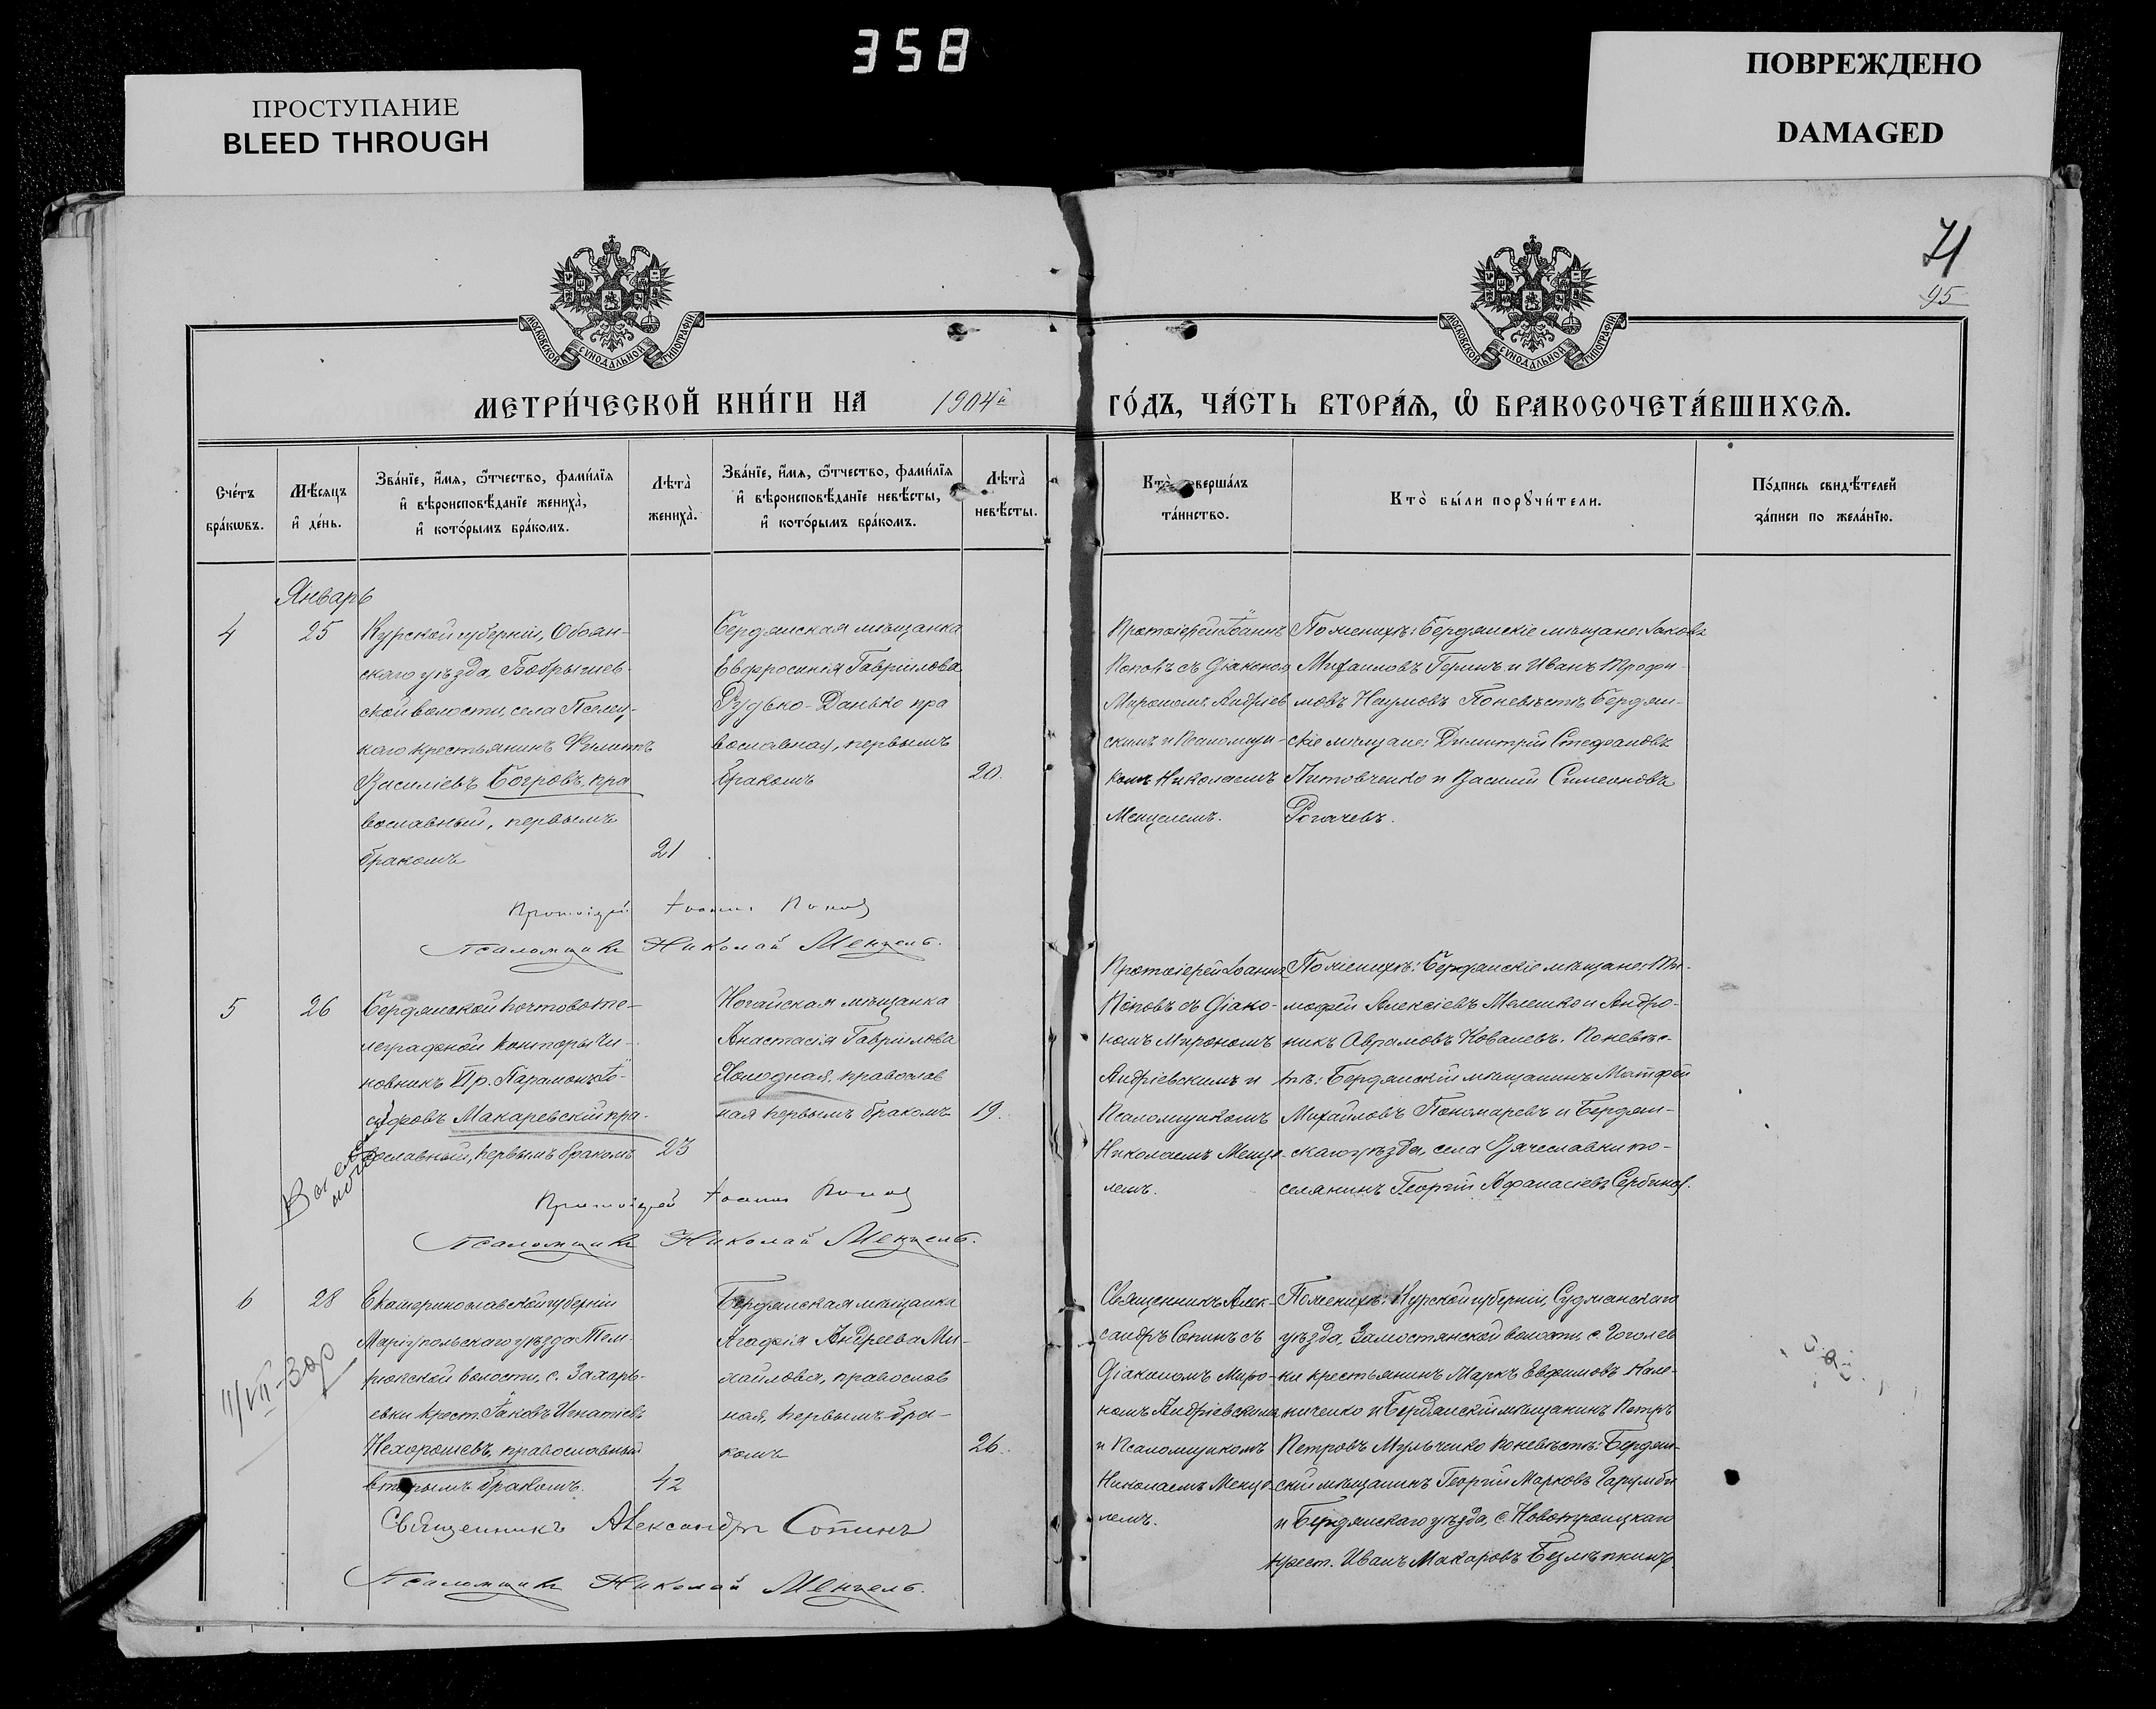 358
ПРОСТУПАНИЕ
BLEED THROUGH
ПОВРЕЖДЕНО
DAMAGED
71
95
МОСКОВСКОЙ СѴНОДАЛЬНОЙ ТИПОГРАФІИ
МОСКОВСКОЙ СѴНОДАЛЬНОЙ ТИПОГРАФІИ
МЕТРИ́ЧЕСКОЙ КНИ́ГИ НА 1904й ГО́ДЪ, ЧА́СТЬ ВТОРА́Я, Ѽ БРАКОСОЧЕТА́ВШИХСЯ.
Сче́тъ
бра́кѡвъ.
Мѣ́сяцъ
и҆ де́нь.
Зва́нїе, и҆́мя, ѻ҆́тчество, фами́лїя
и҆ вѣроисповѣ́данїе жениха̀,
и҆ кото́рымъ бра́комъ.
Лѣта̀
жениха̀.
Зва́нїе, и҆́мя, ѻ҆́тчество, фами́лїя
и҆ вѣроисповѣ́данїе невѣ́сты,
и҆ кото́рымъ бра́комъ.
Лѣта̀
невѣ́сты.
Кто̀ соверша́лъ
та́инство.
Кто̀ бы́ли порꙋчи́тели.
По́дпись свидѣ́телей
за́писи по жела́нїю.
Январь
4
25
Курской губерніи, Обоян-
скаго уѣзда, Бобрышев-
ской волости, села Пселец-
каго крестьянинъ Филиппъ
Василіевъ Богровъ, пра
вославный, первымъ
бракомъ
21
Бердянская мѣщанка
Евфросинія Гавріилова
Рудько-Данько пра
вославная, первымъ
бракомъ
20.
Протоіерей Іоаннъ
Поповъ съ Діакономъ
Мирономъ Андріев
скимъ и Псаломщи-
комъ Николаемъ
Менцелемъ.
По женихѣ: Бердянскіе мѣщане: Іаковъ
Михаиловъ и Иванъ Трофи-
мовъ Наумовъ По невѣстѣ Бердян-
скіе мѣщане: Димитрій Стефановъ
Литовченко и Василій Симеоновъ
Рогачевъ.
Протоіерей Іоаннъ Попов
Псаломщикъ Николай Менцель.
5
26
Бердянской почтово те-
леграфной конторы Чи-
новникъ Парамонъ Іо-
сифовъ Макаревскій пра-
вославный, первымъ бракомъ
23
Ногайская мѣщанка
Анастасія Гавріилова
Холодная, православ
ная первымъ бракомъ
19.
Протоіерей Іоаннъ
Поповъ съ Діако-
номъ Мирономъ
Андріевскимъ и
Псаломщикомъ
Николаемъ Менце-
лемъ.
По женихѣ: Бердянскіе мѣщане: Ти-
мофей Алексіевъ Мелешко и Андро-
никъ Аврамовъ Ковалевъ. По невѣс-
тѣ: Бердянскій мѣщанинъ Матфей
Михайловъ Пономаревъ и Бердян-
скаго уѣзда, села Вячеславки по-
селянинъ Георгій Афанасіевъ Сербинов.
Протоіерей Іоаннъ Попов
Псаломщикъ Николай Менцель.
6
28
Екатеринославской губерніи
Маріупольскаго уѣзда Тем-
рюкской волости, с. Захарь-
евки крест. Іаковъ Игнатіевъ
Нехорошевъ, православный
вторымъ бракомъ.
42
Бердянская мѣщанка
Агафія Андреева Ми-
хайлова, православ
ная, первымъ бра-
комъ
26.
Священникъ Алек-
сандръ Сопинъ съ
Діакономъ Миро-
номъ Андріевскимъ
и Псаломщикомъ
Николаемъ Менце-
лемъ.
По женихѣ: Курской губерніи, Суджанскаго
уѣзда, Замостянской волости, с. Гоголев
ки крестьянинъ Маркъ Евфимовъ Кале-
ниченко и Бердянскій мѣщанинъ Петръ
Петровъ Мульченко По невѣстѣ: Бердян-
скій мѣщанинъ Георгій Марковъ
и Бердянскаго уѣзда, с. Новотроицкаго
крест. Иванъ Макаровъ
Священникъ Александръ Сопинъ
Псаломщикъ Николай Менцель.